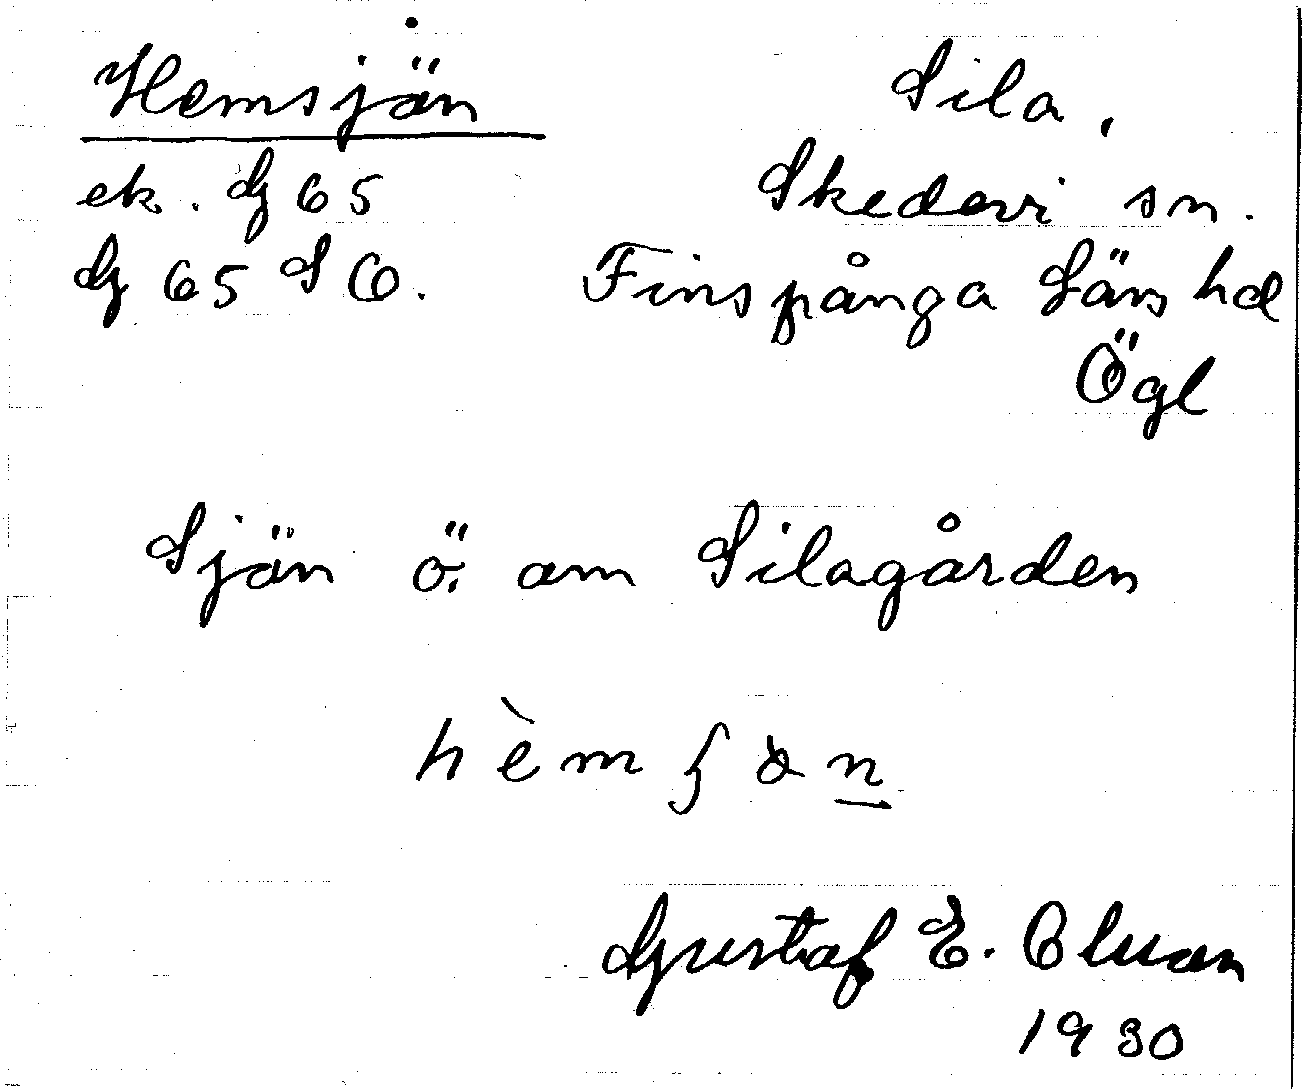 Hemsjön
Sila,
ek. G 65
Skedevi sn.
G 65 S O.
Finspånga Läns hd
Ögl
Sjön ö. om Silagården
hèmʃön
Gustaf E. Olsson
1930